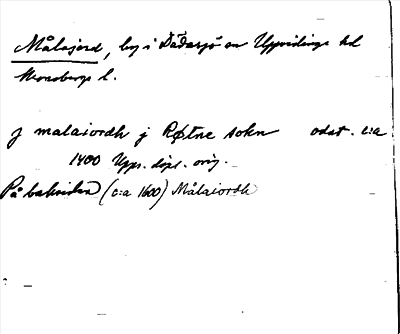 Målajord, by i Dädesjö sn Uppvidinge hd
Kronobergs l.
j malaiordh j Røtne sokn odat. c:a
1400 Upps. dipl. orig.
På baksidan (c:a 1600) Målaiordh